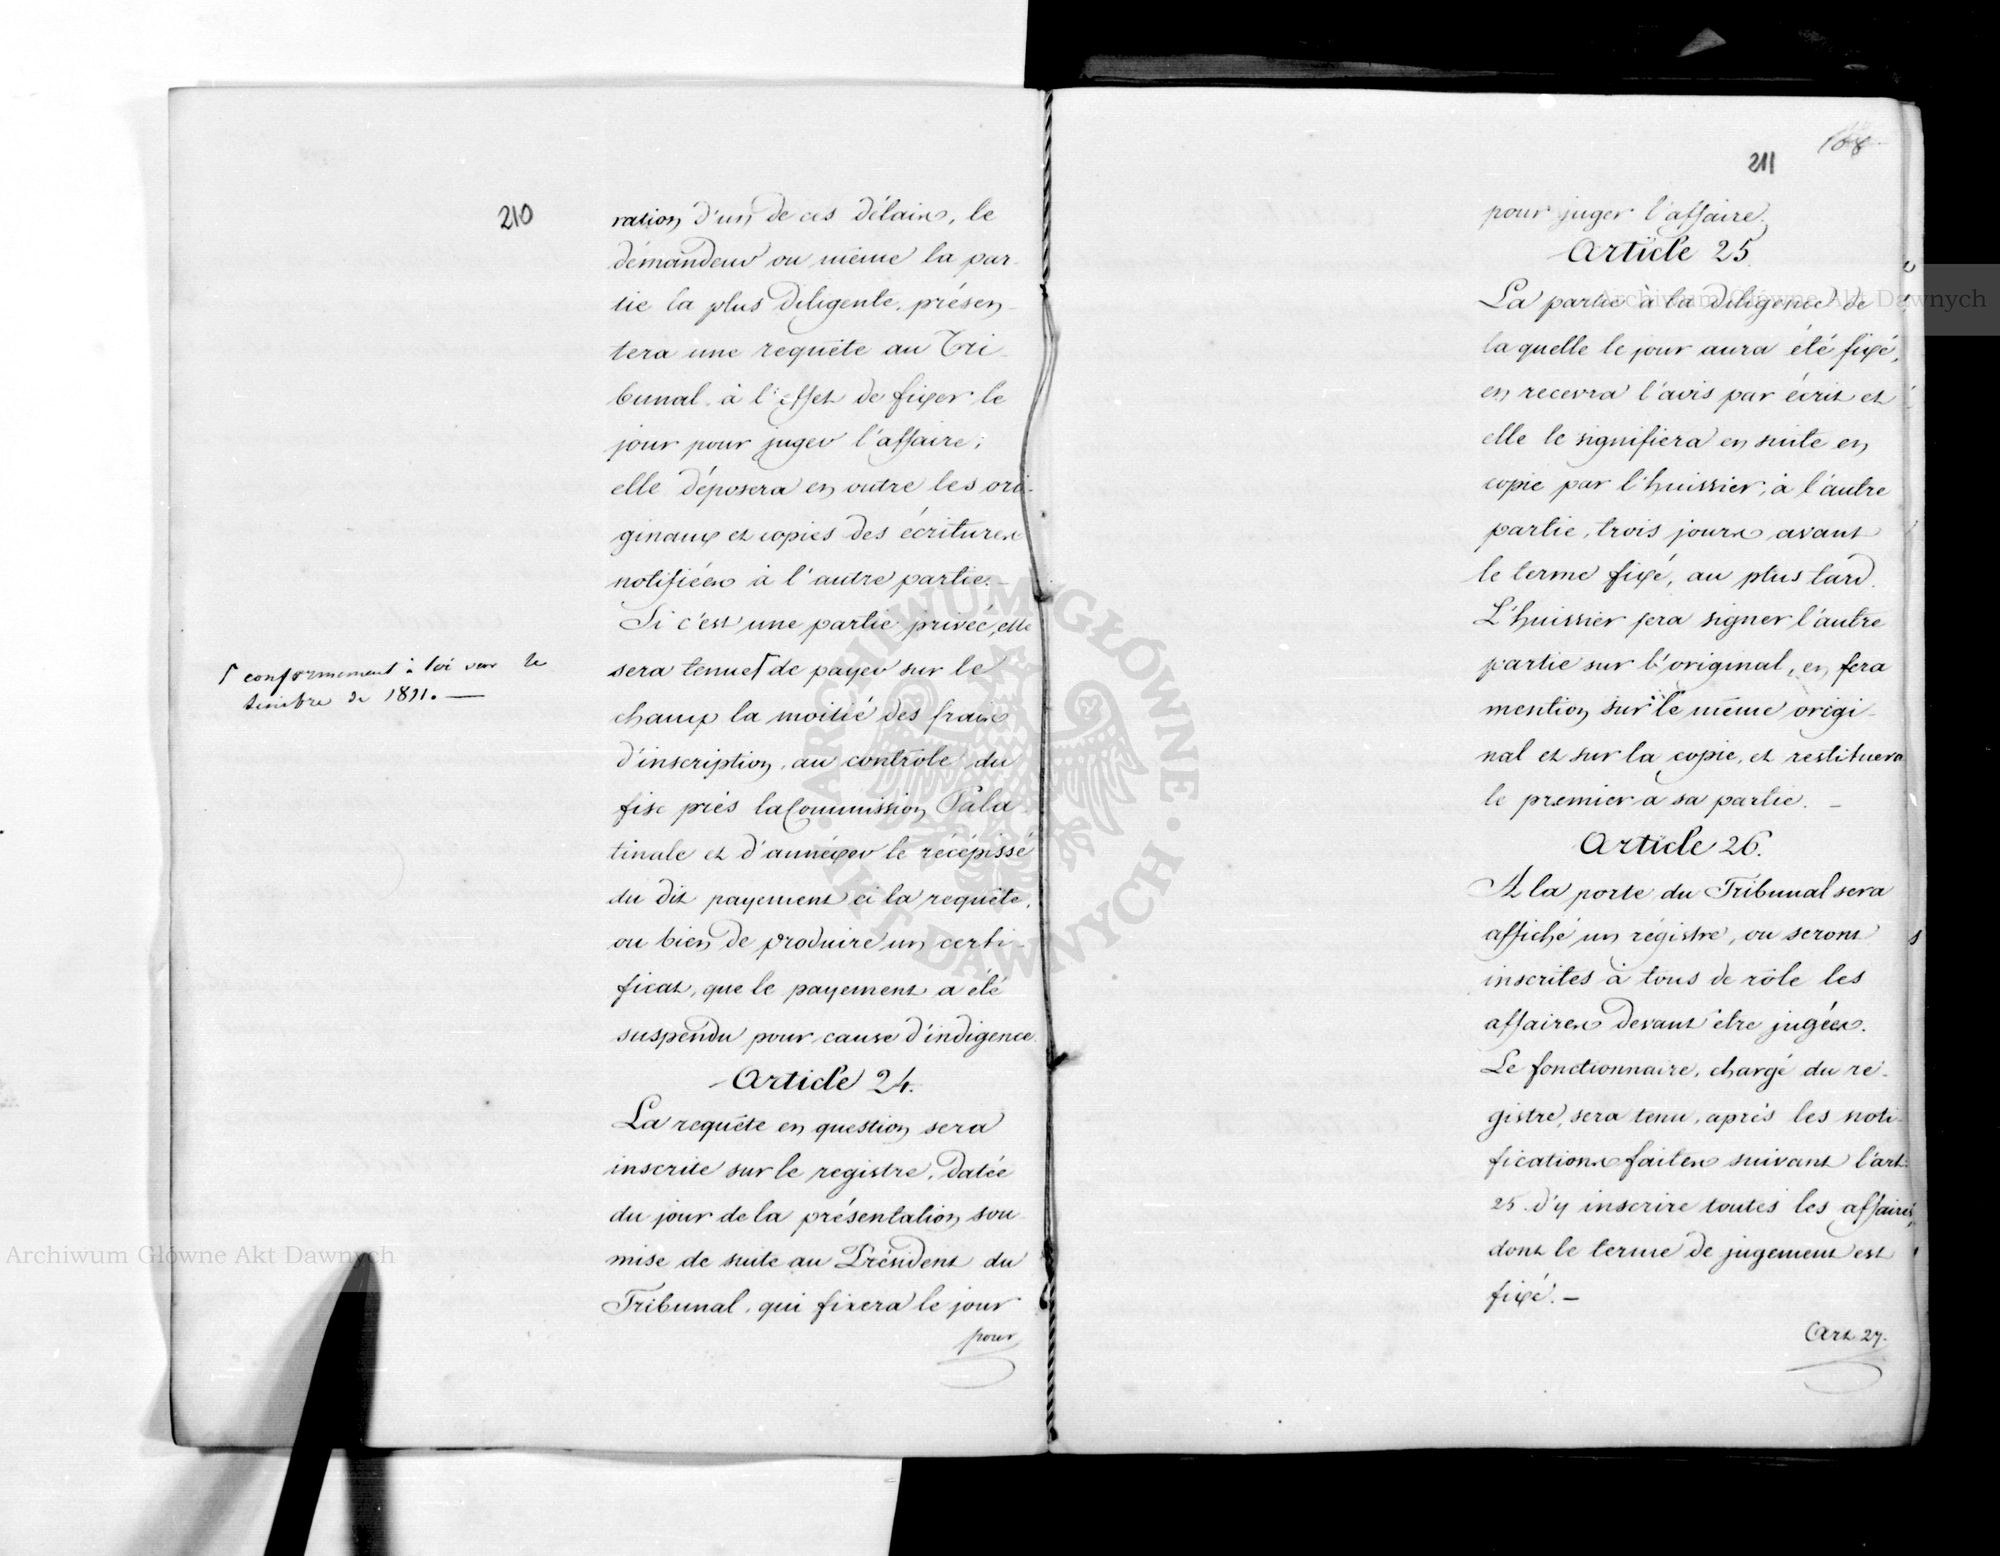 210
ration d'un de ces délais, le
démandeur ou même la par-
tie la plus diligente, présen-
tera une requête au Tri-
bunal à l'effet de fixer le
jour pour juger l'affaire;
elle déposera en outre les ori-
ginaux et copies des écritures
notifiées à l'autre partie. —
Si c'est une partie privée, elle
sera tenue de payer sur le
champ la moitié des frais
d'inscription, au contrôle du
fisc près la Commission Pala-
tinale et d'annéxer le récépissé
du dit payement à la requête,
ou bien de produire un certi-
ficat, que le payement a été
suspendu pour cause d'indigence.
conformement à loi sur le
timbre de 1811. —
Article 24.
La requête en question sera
inscrite sur le registre, datée
du jour de la présentation, sou-
mise de suite au Président du
Tribunal, qui fixera le jour
pour
168
211
pour juger l'affaire.
Article 25.
La partie à la diligence de
la quelle le jour aura été fixé,
en recevra l'avis par écrit et
elle le signifiera en suite en
copie par l'huissier, à l'autre
partie, trois jours avant
le terme fixé, au plus tard.
L'huissier fera signer l'autre
partie sur l'original, en fera
mention sur le même origi-
nal et sur la copie, et restituera
le premier à sa partie. —
Article 26.
A la porte du Tribunal sera
affiché un régistre, ou seront
inscrites à tous de rôle les
affaires devant être jugées.
Le fonctionnaire, chargé du re-
gistre, sera tenu, après les noti-
fications faites suivant l'art.
25. d'y inscrire toutes les affaires,
dont le terme de jugement est
fixé. —
Art. 27.
Archiwum Główne Akt Dawnych
Archiwum Główne Akt Dawnych
ARCHIWUM GŁÓWNE · AKT DAWNYCH ·